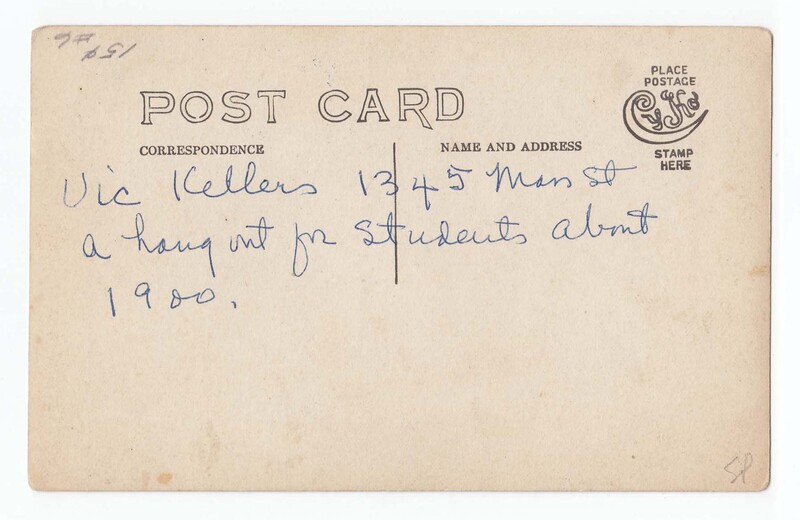 POST CARD
PLACE
POSTAGE
Cyko
STAMP
HERE
CORRESPONDENCE
NAME AND ADDRESS
Vic Kellers 1345 Mass St
a hang out for students about
1900.